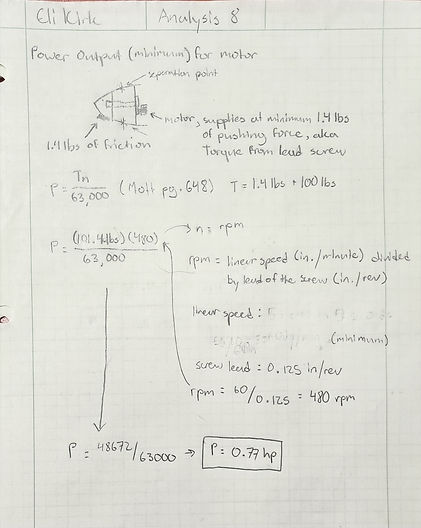 Eli Kirk Analysis 8
Power Output (minimum) for motor
separation point
motor, supplies at minimum 1.4 lbs
of pushing force, aka
Torque from lead screw
1.4 lbs of friction
P = Tn/63,000 (Mott pg. 648) T = 1.4 lbs + 100 lbs
P = (101.4 lbs)(480)/63,000
n = rpm
rpm = linear speed (in./minute) divided
by lead of the screw (in./rev)
linear speed:
(minimum)
screw lead = 0.125 in/rev
rpm = 60/0.125 = 480 rpm
P = 48672/63000 → P = 0.77 hp